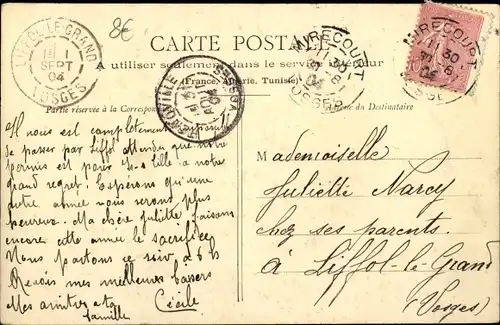 8€
CARTE POSTALE
A utiliser seulement dans le service intérieur
(France, Algérie, Tunisie)
Partie réservée à la Correspondance
Adresse du Destinataire
LIFFOL-LE-GRAND
1
SEPT
04
VOSGES
MIRECOURT
30
8
04
VOSGES
MIRECOURT
30
8
04
VOSGES
Il nous est complètement impossible
de passer par Liffol attendu que notre
permis est pour Lille à notre
grand regret! Espérons qu'une
autre année nous serons plus
heureux. Ma chère Juliette faisons
encore cette année le sacrifice
Nous partons ce soir à 6 h
Reçois mes meilleurs baisers
Mes amitiés à ta
famille
Cécile
Mademoiselle
Juliette Narcy
chez ses parents.
à Liffol-le-Grand
(Vosges)